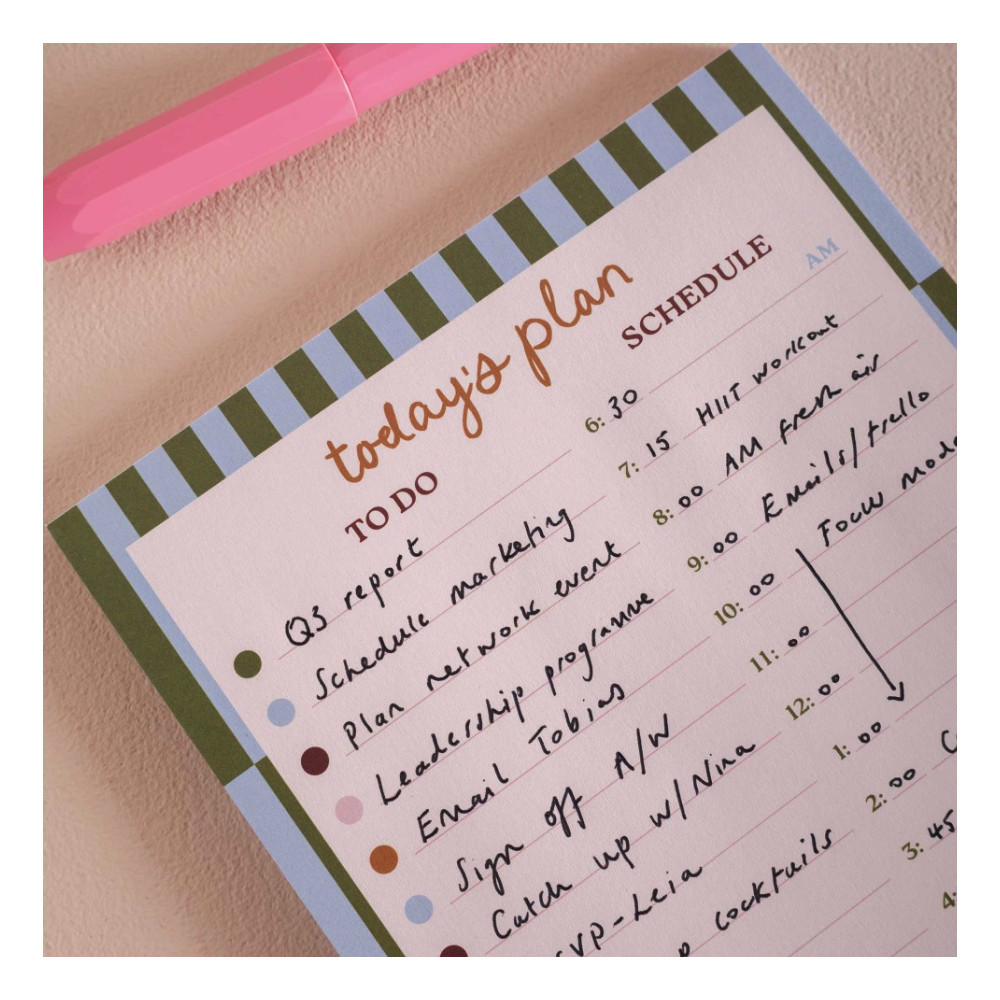 today's plan
TO DO
Q3 report
Schedule marketing
Plan network event
Leadership programme
Email Tobias
Sign off A/W
Catch up w/Nina
cocktails
SCHEDULE
AM
6:30
7:15 HIIT workout
8:00 AM fresh air
9:00 Emails/trello
10:00 Focus mode
11:00
12:00
1:00
2:00
3:45
4: